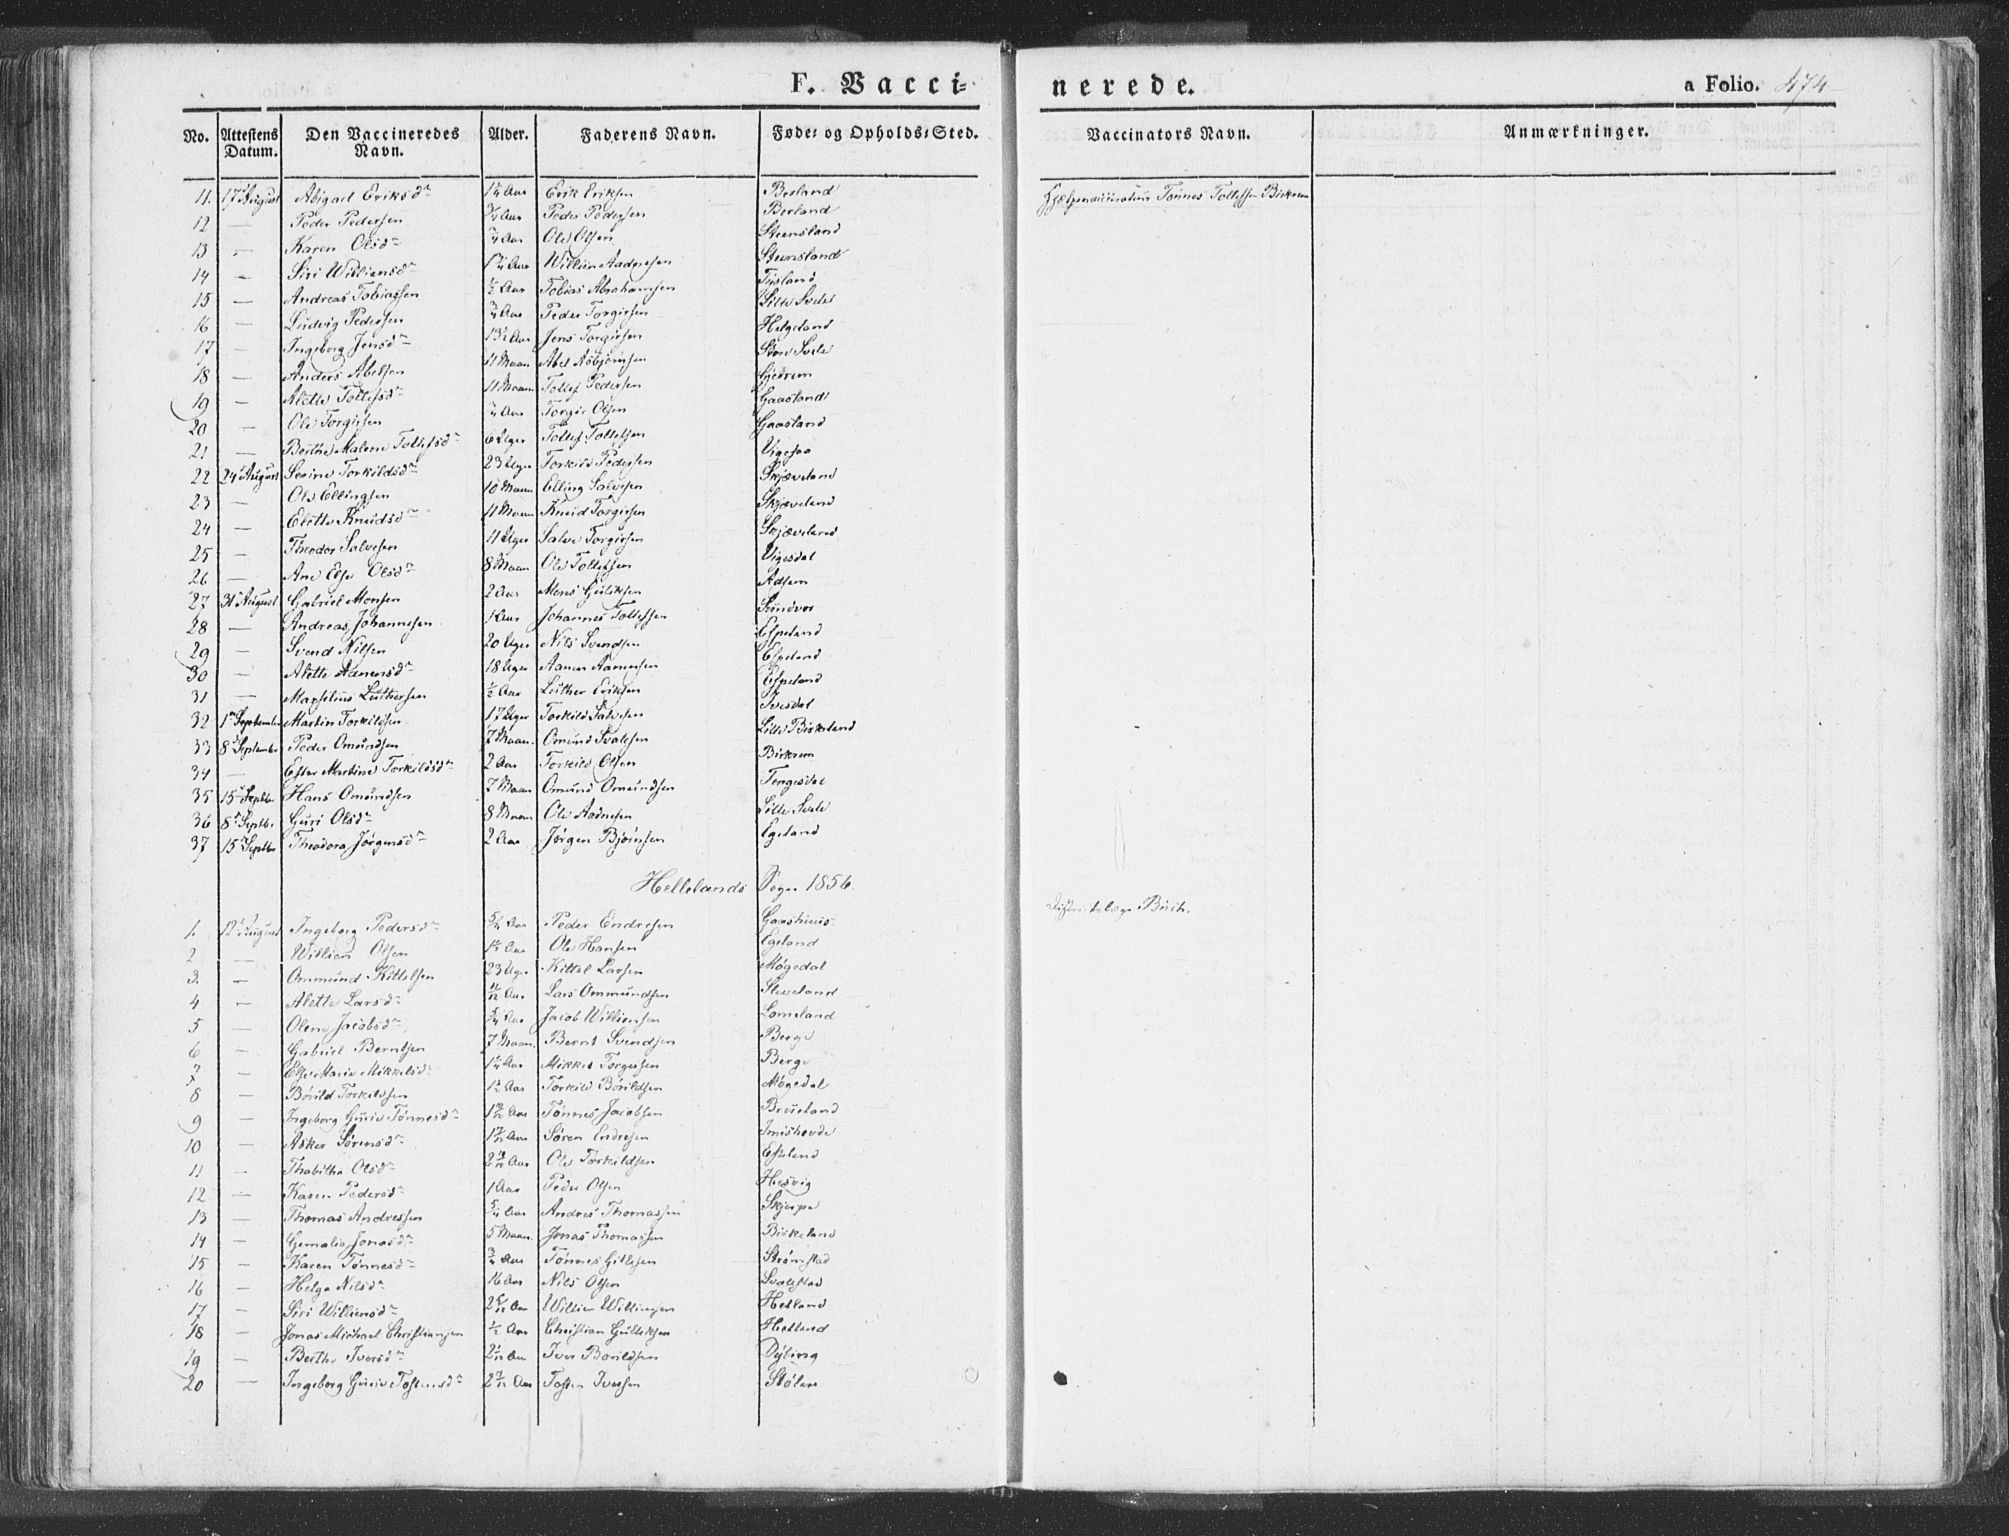 F. Vacci-
nerede.
a Folio. 474
No. Attestens Datum. Den Vaccineredes Navn. Alder. Faderens Navn. Føde- og Opholds-Sted. Vaccinators Navn. Anmærkninger.
11. 17 August Abigael Eriksd. Aar Erik Eriksen Berland Hjelpevaccinateur Tønnes Tollefsen Birkrem
12 — Peder Pedersen 3/4 Aar Peder Pedersen Berland
13 — Karen Olsd. Aar Ole Olsen Steensland
14 — Siri Williensd. Aar Willien Aadnesen Steensland
15 — Andreas Tobiassen 1/2 Aar Tobias Abrahamsen
16 — Ludvig Pedersen 3/4 Aar Peder Torgirsen Lille Svele
17 — Ingeborg Jensd. Aar Jens Torgirsen Helgeland
18 — Anders Abelsen 11 Maan Abel Asbjørnsen Store Svele
19 — Alette Tollefsd. 11 Maan Tollef Pedersen Gjedrem
20 — Ole Torgirsen Aar Torgir Olsen Gaasland
21 — Berthe Malene Tollefsd. 6 Uger Tollef Tollefsen Gaasland
22 24 August Serine Torkildsd. 23 Uger Torkild Pedersen Vigesaa
23 — Ole Ellingsen 10 Maan Elling Salvesen Skjæveland
24 — Elette Knudsd. 11 Maan Knud Torgirsen Skjæveland
25 — Theodor Salvesen 11 Uger Salve Torgirsen Skjæveland
26 — Ane Else Olsd. 8 Maan Ole Tollefsen Vigesdal
27 31 August Gabriel Monsen 2 Aar Mons Guliksen Adsem
28 — Andreas Johannesen 1 Aar Johannes Tollefsen Sundvor
29 — Svend Nilsen 20 Uger Nils Svendsen Espeland
30 — Alette Aamensd. 18 Uger Aamen Aamensen Espeland
31 — Marselius Luthersen 1/2 Aar Luther Eriksen Espeland
32 1 September Martin Torkildsen 17 Uger Torkild Salvesen Ivesdal
33 8 September Peder Omundsen 7 Maan. Omund Svalesen Lille Birkeland
34 — Ester Martine Torkildsd. 2 Aar Torkild Olsen Birkrem
35 15 Septbr Hans Omundsen 7 Maan Omund Omundsen Tengesdal
36 8 Septbr Guri Olsd. 8 Maan Ole Aadnesen Lille Svele
37 15 Septbr Theodora Jørgensd. 2 Aar Jørgen Bjørnsen Egeland
Hellelands Sogn 1856.
1. 12 August Ingeborg Pedersd. 5/4 Aar Peder Endresen Gaashuus Districtslæge Birch.
2 — Willien Olsen Aar Ole Hansen Egeland
3. — Ommund Kittelsen 23 Uger Kittel Larsen Møgedal
4 — Alette Larsd. 11/12 Aar Lars Ommundsen Sleveland
5 — Olene Jacobsd. 5/4 Aar Jacob Williensen Lomeland
6 — Gabriel Berntsen 7 Maan. Bernt Svendsen Berge
7 — Else Marie Mikkelsd. Aar Mikkel Torgersen Berge
8 — Børild Torkildsen 1 1/2 Aar Torkild Børildsen Møgedal
9 — Ingeborg Gurie Tønnesd. Aar Tønnes Jacobsen Brueland
10 — Asker Sørensd. Aar Søren Endresen
11 — Thabitha Olsd. Aar Ole Torkildsen Eseland
12 — Karen Pedersd. 1 Aar Peder Olsen Hesvig
13 — Thomas Andressen 5/4 Aar Andres Thomassen Skjerpe
14 — Gemalie Jonasd. 5 Maan. Jonas Thomassen Birkeland
15 — Karen Tønnesd. 3/4 Aar Tønnes Gitlesen Strømstad
16 — Helga Nilsd. 16 Aar Nils Olsen Svalestad
17 — Siri Williensd. Aar Willien Williensen Hetland
18 — Jonas Michael Christiansen 1/2 Aar Christian Gulliksen Hetland
19 — Berthe Iversd. Aar Iver Børildsen Dybing
20 — Ingeborg Gurie Tostensd. Aar Tosten Iversen Stølen